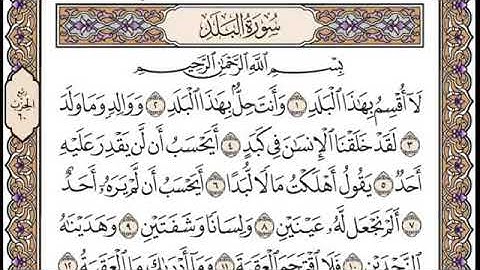 سُورَةُ الْبَلَدِ
بِسْمِ اللَّهِ الرَّحْمَٰنِ الرَّحِيمِ
لَا أُقْسِمُ بِهَٰذَا الْبَلَدِ ١ وَأَنتَ حِلٌّ بِهَٰذَا الْبَلَدِ ٢ وَوَالِدٍ وَمَا وَلَدَ
٣ لَقَدْ خَلَقْنَا الْإِنسَانَ فِي كَبَدٍ ٤ أَيَحْسَبُ أَن لَّن يَقْدِرَ عَلَيْهِ
أَحَدٌ ٥ يَقُولُ أَهْلَكْتُ مَالًا لُّبَدًا ٦ أَيَحْسَبُ أَن لَّمْ يَرَهُ أَحَدٌ
٧ أَلَمْ نَجْعَل لَّهُ عَيْنَيْنِ ٨ وَلِسَانًا وَشَفَتَيْنِ ٩ وَهَدَيْنَاهُ
النَّجْدَيْنِ ١٠ فَلَا اقْتَحَمَ الْعَقَبَةَ ١١ وَمَا أَدْرَاكَ مَا الْعَقَبَةُ ١٢
ربع
الحزب
٦٠